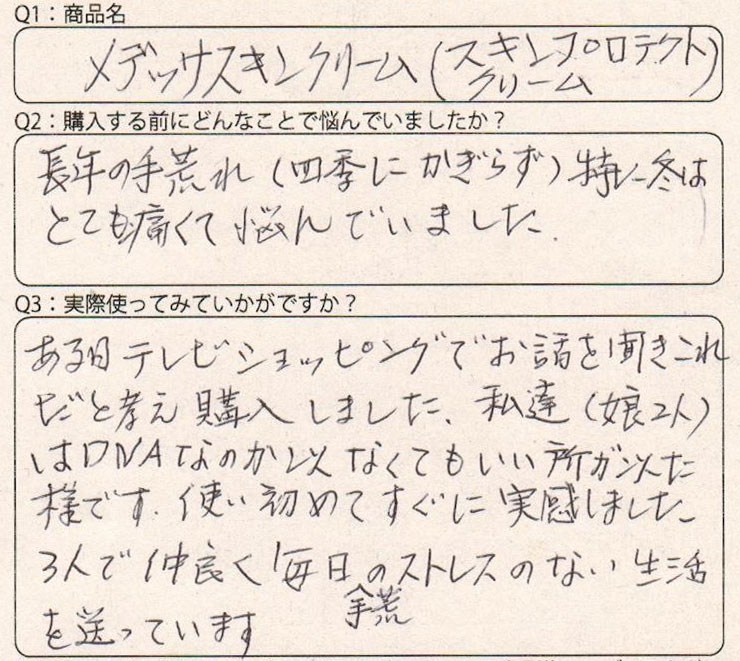 Q1：商品名
メデッサスキンクリーム(スキンプロテクト
クリーム)
Q2：購入する前にどんなことで悩んでいましたか？
長年の手荒れ(四季にかぎらず)特に冬は
とても痛くて悩んでいました.
Q3：実際使ってみていかがですか？
ある日テレビショッピングでお話を聞きこれ
だと考え購入しました、私達(娘2人)
はDNAなのか似なくてもいい所が似た
様です.使い初めてすぐに実感しました
3人で仲良く毎日のストレスのない生活
手荒
を送っています